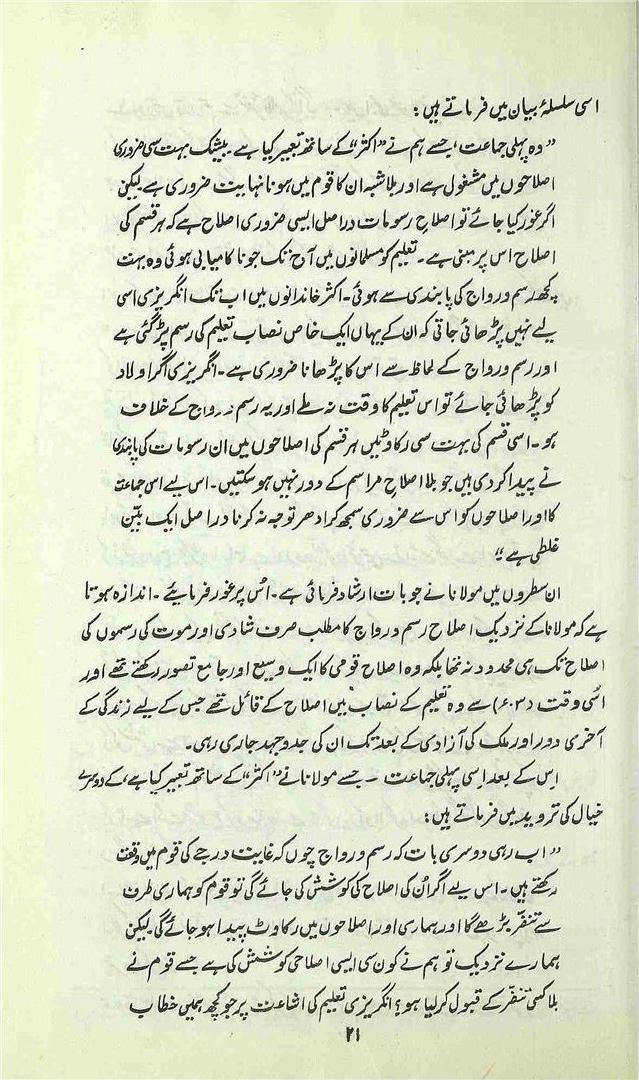 اسی سلسلۂ بیان میں فرماتے ہیں:
”وہ پہلی جماعت، جسے ہم نے ”اکثر“ کے ساتھ تعبیر کیا ہے بیشک بہت سی ضروری
اصلاحوں میں مشغول ہے اور بلا شبہ ان کا قوم میں ہونا نہایت ضروری ہے لیکن
اگر غور کیا جائے تو اصلاحِ رسومات دراصل ایسی ضروری اصلاح ہے کہ ہر قسم کی
اصلاح اس پر مبنی ہے۔ تعلیم کو مسلمانوں میں آج تک جو ناکامیابی ہوئی وہ بہت
کچھ رسم و رواج کی پابندی سے ہوئی۔ اکثر خاندانوں میں اب تک انگریزی اسی
لیے نہیں پڑھائی جاتی کہ ان کے یہاں ایک خاص نصابِ تعلیم کی رسم پڑ گئی ہے
اور رسم و رواج کے لحاظ سے اس کا پڑھانا ضروری ہے۔ انگریزی اگر اولاد
کو پڑھائی جائے تو اس تعلیم کا وقت نہ ملے اور یہ رسم و رواج کے خلاف
ہو۔ اسی قسم کی بہت سی رکاوٹیں ہر قسم کی اصلاحوں میں ان رسومات کی پابندی
نے پیدا کر دی ہیں جو بلا اصلاحِ مراسم کے دور نہیں ہو سکتیں۔ اس لیے اس جماعت
کا اور اصلاحوں کو اس سے ضروری سمجھ کر ادھر توجہ نہ کرنا دراصل ایک بیّن
غلطی ہے“
ان سطروں میں مولانا نے جو بات ارشاد فرمائی ہے۔ اُس پر غور فرمایئے۔ اندازہ ہوتا
ہے کہ مولانا کے نزدیک اصلاح رسم و رواج کا مطلب صرف شادی اور موت کی رسموں کی
اصلاح تک ہی محدود نہ تھا بلکہ وہ اصلاح قومی کا ایک وسیع اور جامع تصور رکھتے تھے اور
اُسی وقت (۶۰۳) سے وہ تعلیم کے نصاب میں اصلاح کے قائل تھے جس کے لیے زندگی کے
آخری دور اور ملک کی آزادی کے بعد تک ان کی جدوجہد جاری رہی۔
اس کے بعد اِسی پہلی جماعت ۔ جسے مولانا نے ”اکثر“ کے ساتھ تعبیر کیا ہے، کے دوسرے
خیال کی تردید میں فرماتے ہیں:
”اب رہی دوسری بات کہ رسم و رواج چوں کہ غایت درجے کی قوم میں وقعت
رکھتے ہیں۔ اس لیے اگر اُن کی اصلاح کی کوشش کی جائے گی تو قوم کو ہماری طرف
سے تنفّر بڑھے گا اور ہماری اور اصلاحوں میں رکاوٹ پیدا ہو جائے گی لیکن
ہمارے نزدیک تو ہم نے کون سی ایسی اصلاحی کوشش کی ہے جسے قوم نے
بلا کسی تنفّر کے قبول کر لیا ہو؟ انگریزی تعلیم کی اشاعت پر جو کچھ ہمیں خطاب
۲۱